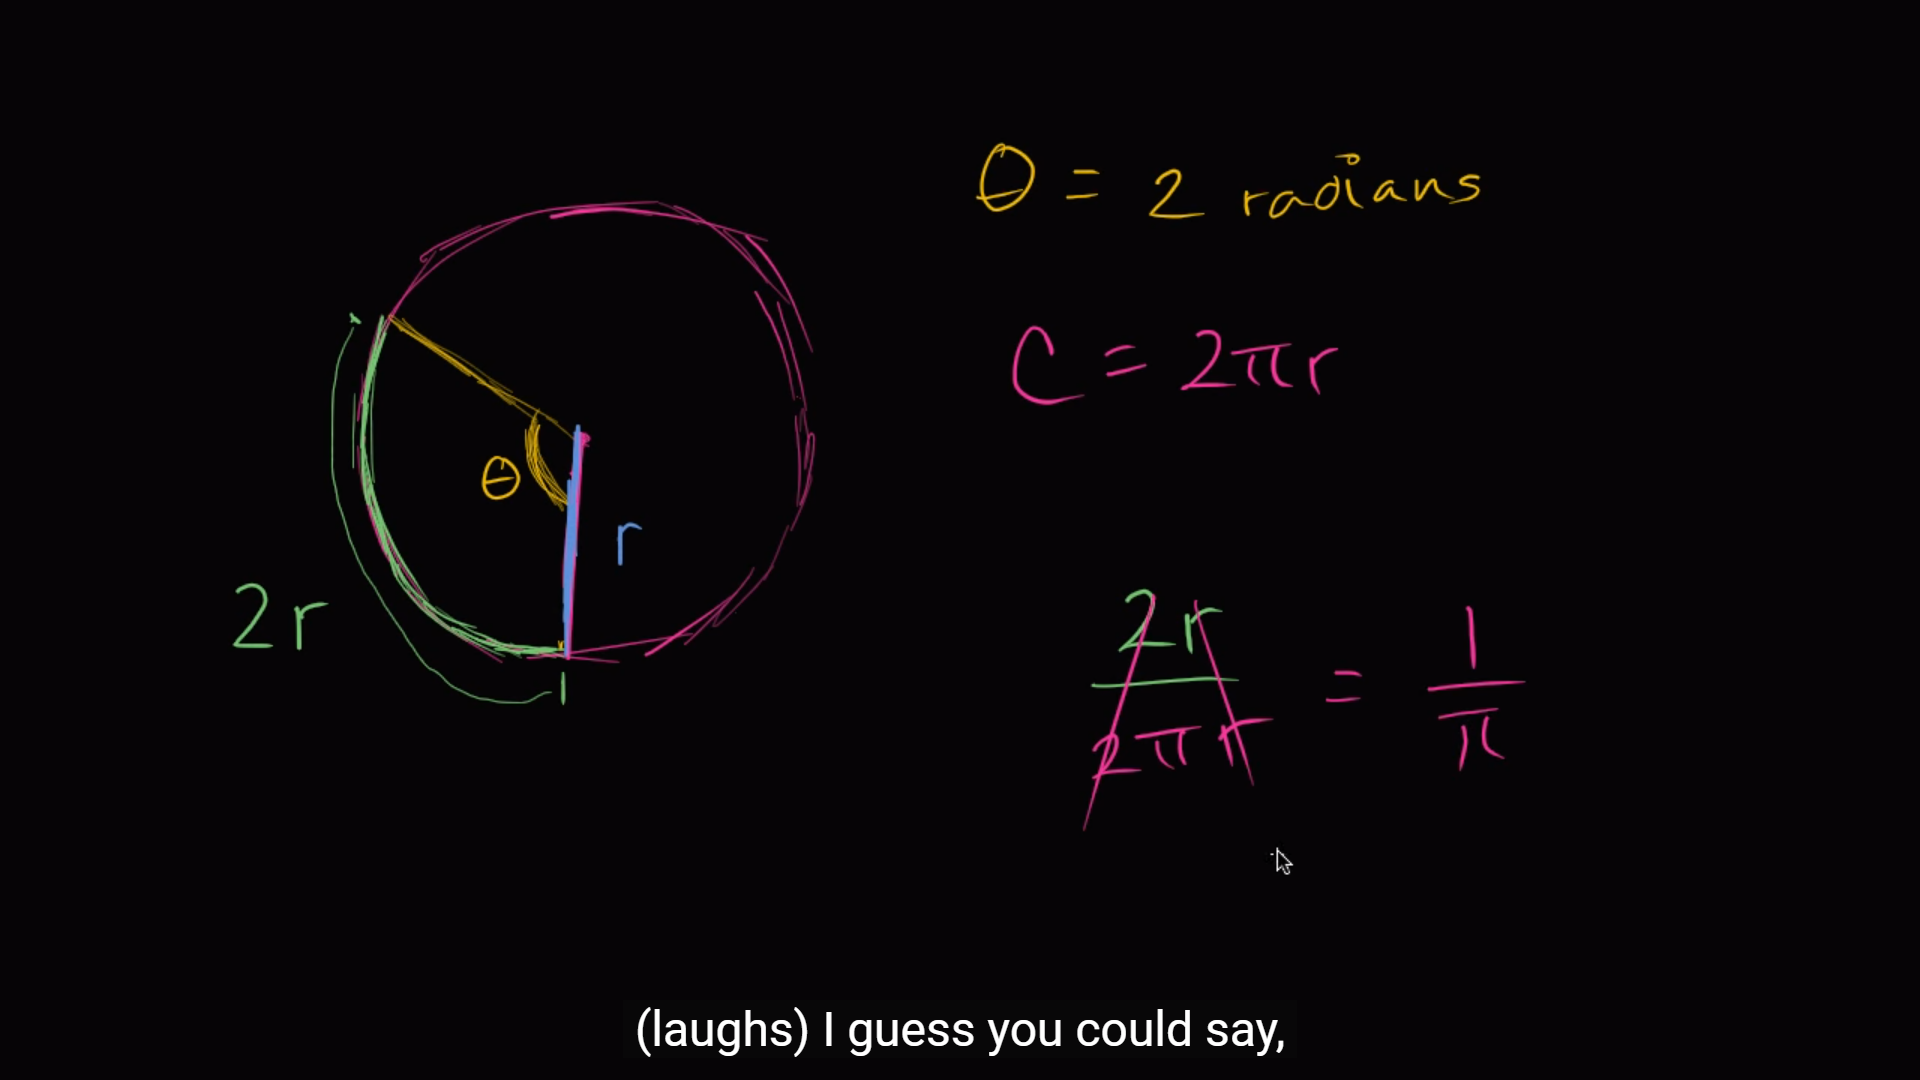 θ = 2 radians
C = 2πr
θ
r
2r
2r/2πr = 1/π
(laughs) I guess you could say,